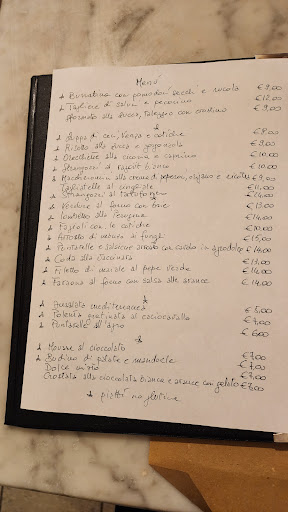 Menù
* Burratina con pomodori secchi e rucola €9,00
* Tagliere di salumi e pecorino €12,00
Sformato alla zucca, taleggio con €9,00
*
* Zuppa di ceci, verza e cotiche €8,00
* Risotto alla zucca e gorgonzola €9,00
* Orecchiette alla crema e caprino €10,00
* Strangozzi al ragout bianco €10,00
* Maccheroncini alla crema di peperoni, e ricotta €9,00
Tagliatelle al cinghiale €11,00
* Strangozzi al tartufo €14,00
* Verdure al forno con brie €13,00
* alla Perugina €14,00
* Fagioli con le cotiche €10,00
* Arrosto di maiale ai funghi €15,00
* Puntarelle e salsicce arrosto con in agrodolce €14,00
* Coda alla vaccinara €13,00
* Filetto di maiale al pepe verde €14,00
* Faraona al forno con salsa alle arance €14,00
*
* mediterranea €5,00
* Polenta gratinata al caciocavallo €7,00
* Puntarelle all'agro €6,00
*
* Mousse al cioccolato €7,00
* Budino di patate e mandorle €7,00
Dolce misto €7,00
Crostata alla cioccolata bianca e arance con gelato €8,00
* piatti no glutine